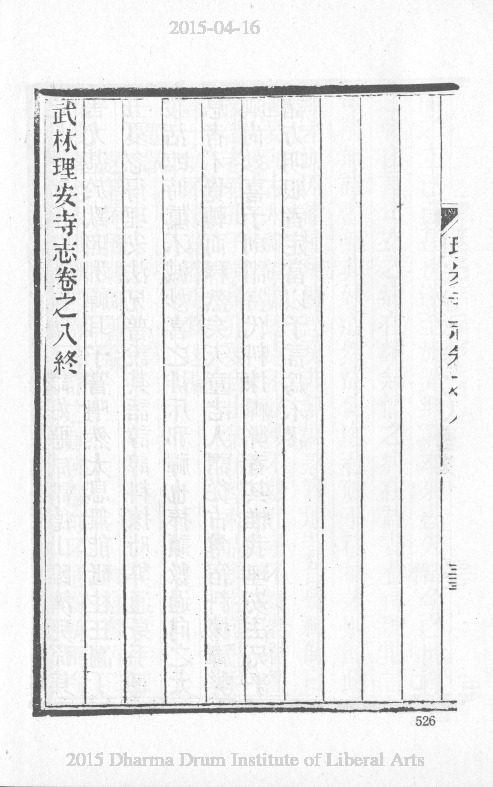 2015-04-16
理安寺志卷之八
武林理安寺志卷之八終
526
2015 Dharma Drum Institute of Liberal Arts